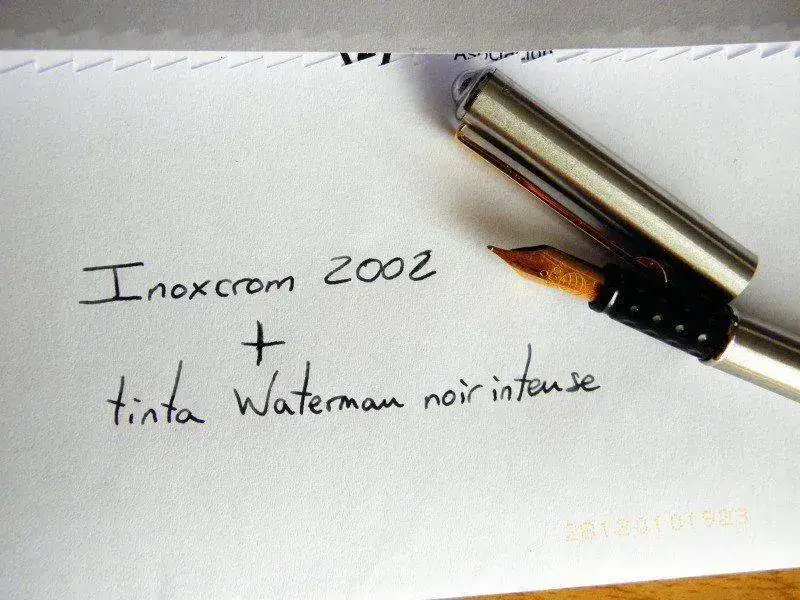 Asociation
Inoxcrom 2002
+
tinta Waterman noir intense
28120101923